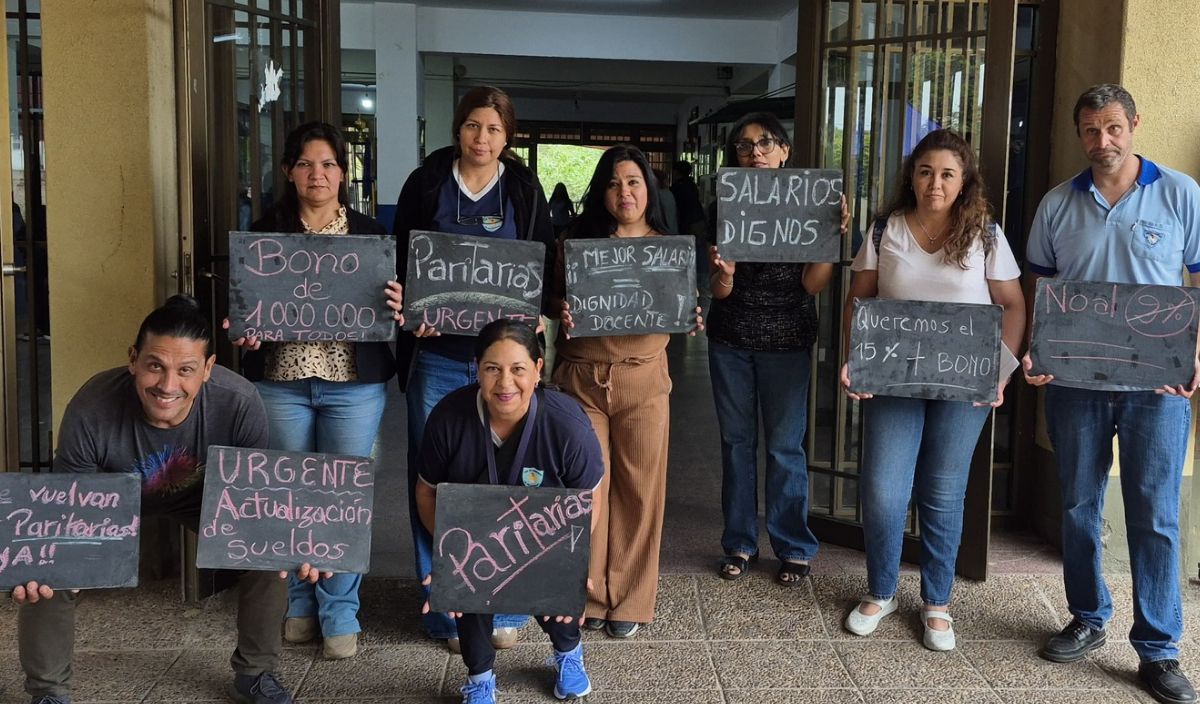 Bono
de
1.000.000
PARA TODOS!
Paritarias
URGENTE
¡¡ MEJOR SALARI
DIGNIDAD
DOCENTE !
SALARIOS
DIGNOS
Queremos el
15 % + BONO
No al 9%
e vuelvan
Paritarias!
YA!!
URGENTE
Actualización
de
sueldos
Paritarias